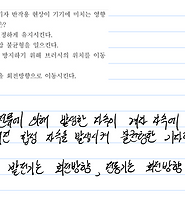 기자 반작용 현상이 기기에 미치는 영향
은?
정하게 유지시킨다.
압 불균형을 일으킨다.
방지하기 위해 브러시의 위치를 이동
을 회전방향으로 이동시킨다.
전류에 의해 발생한 자속이 계자 자속에
합성 자속을 발생시켜 불균형한
발전기는 회전방향, 전동기는 회전방향